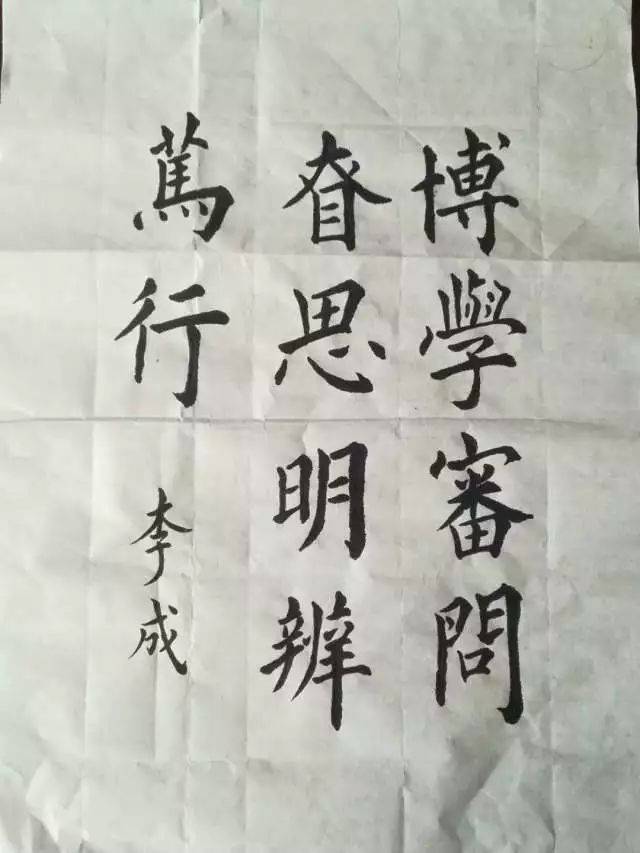 博學審問
昚思明辨
篤行
李成